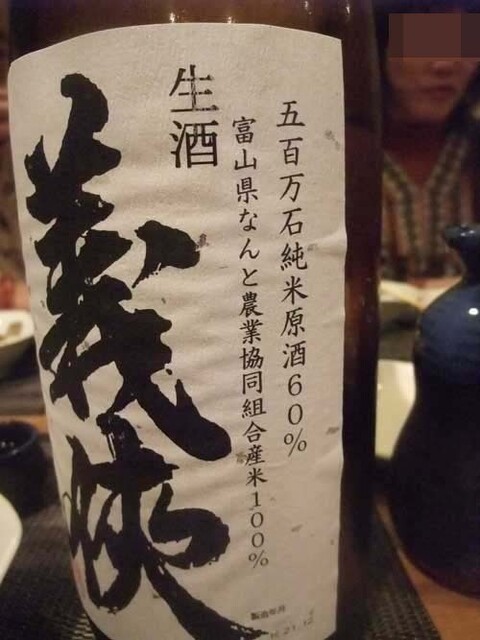 五百万石純米原酒60%
富山県なんと農業協同組合産米100%
生酒
義侠
製造年月
21.12